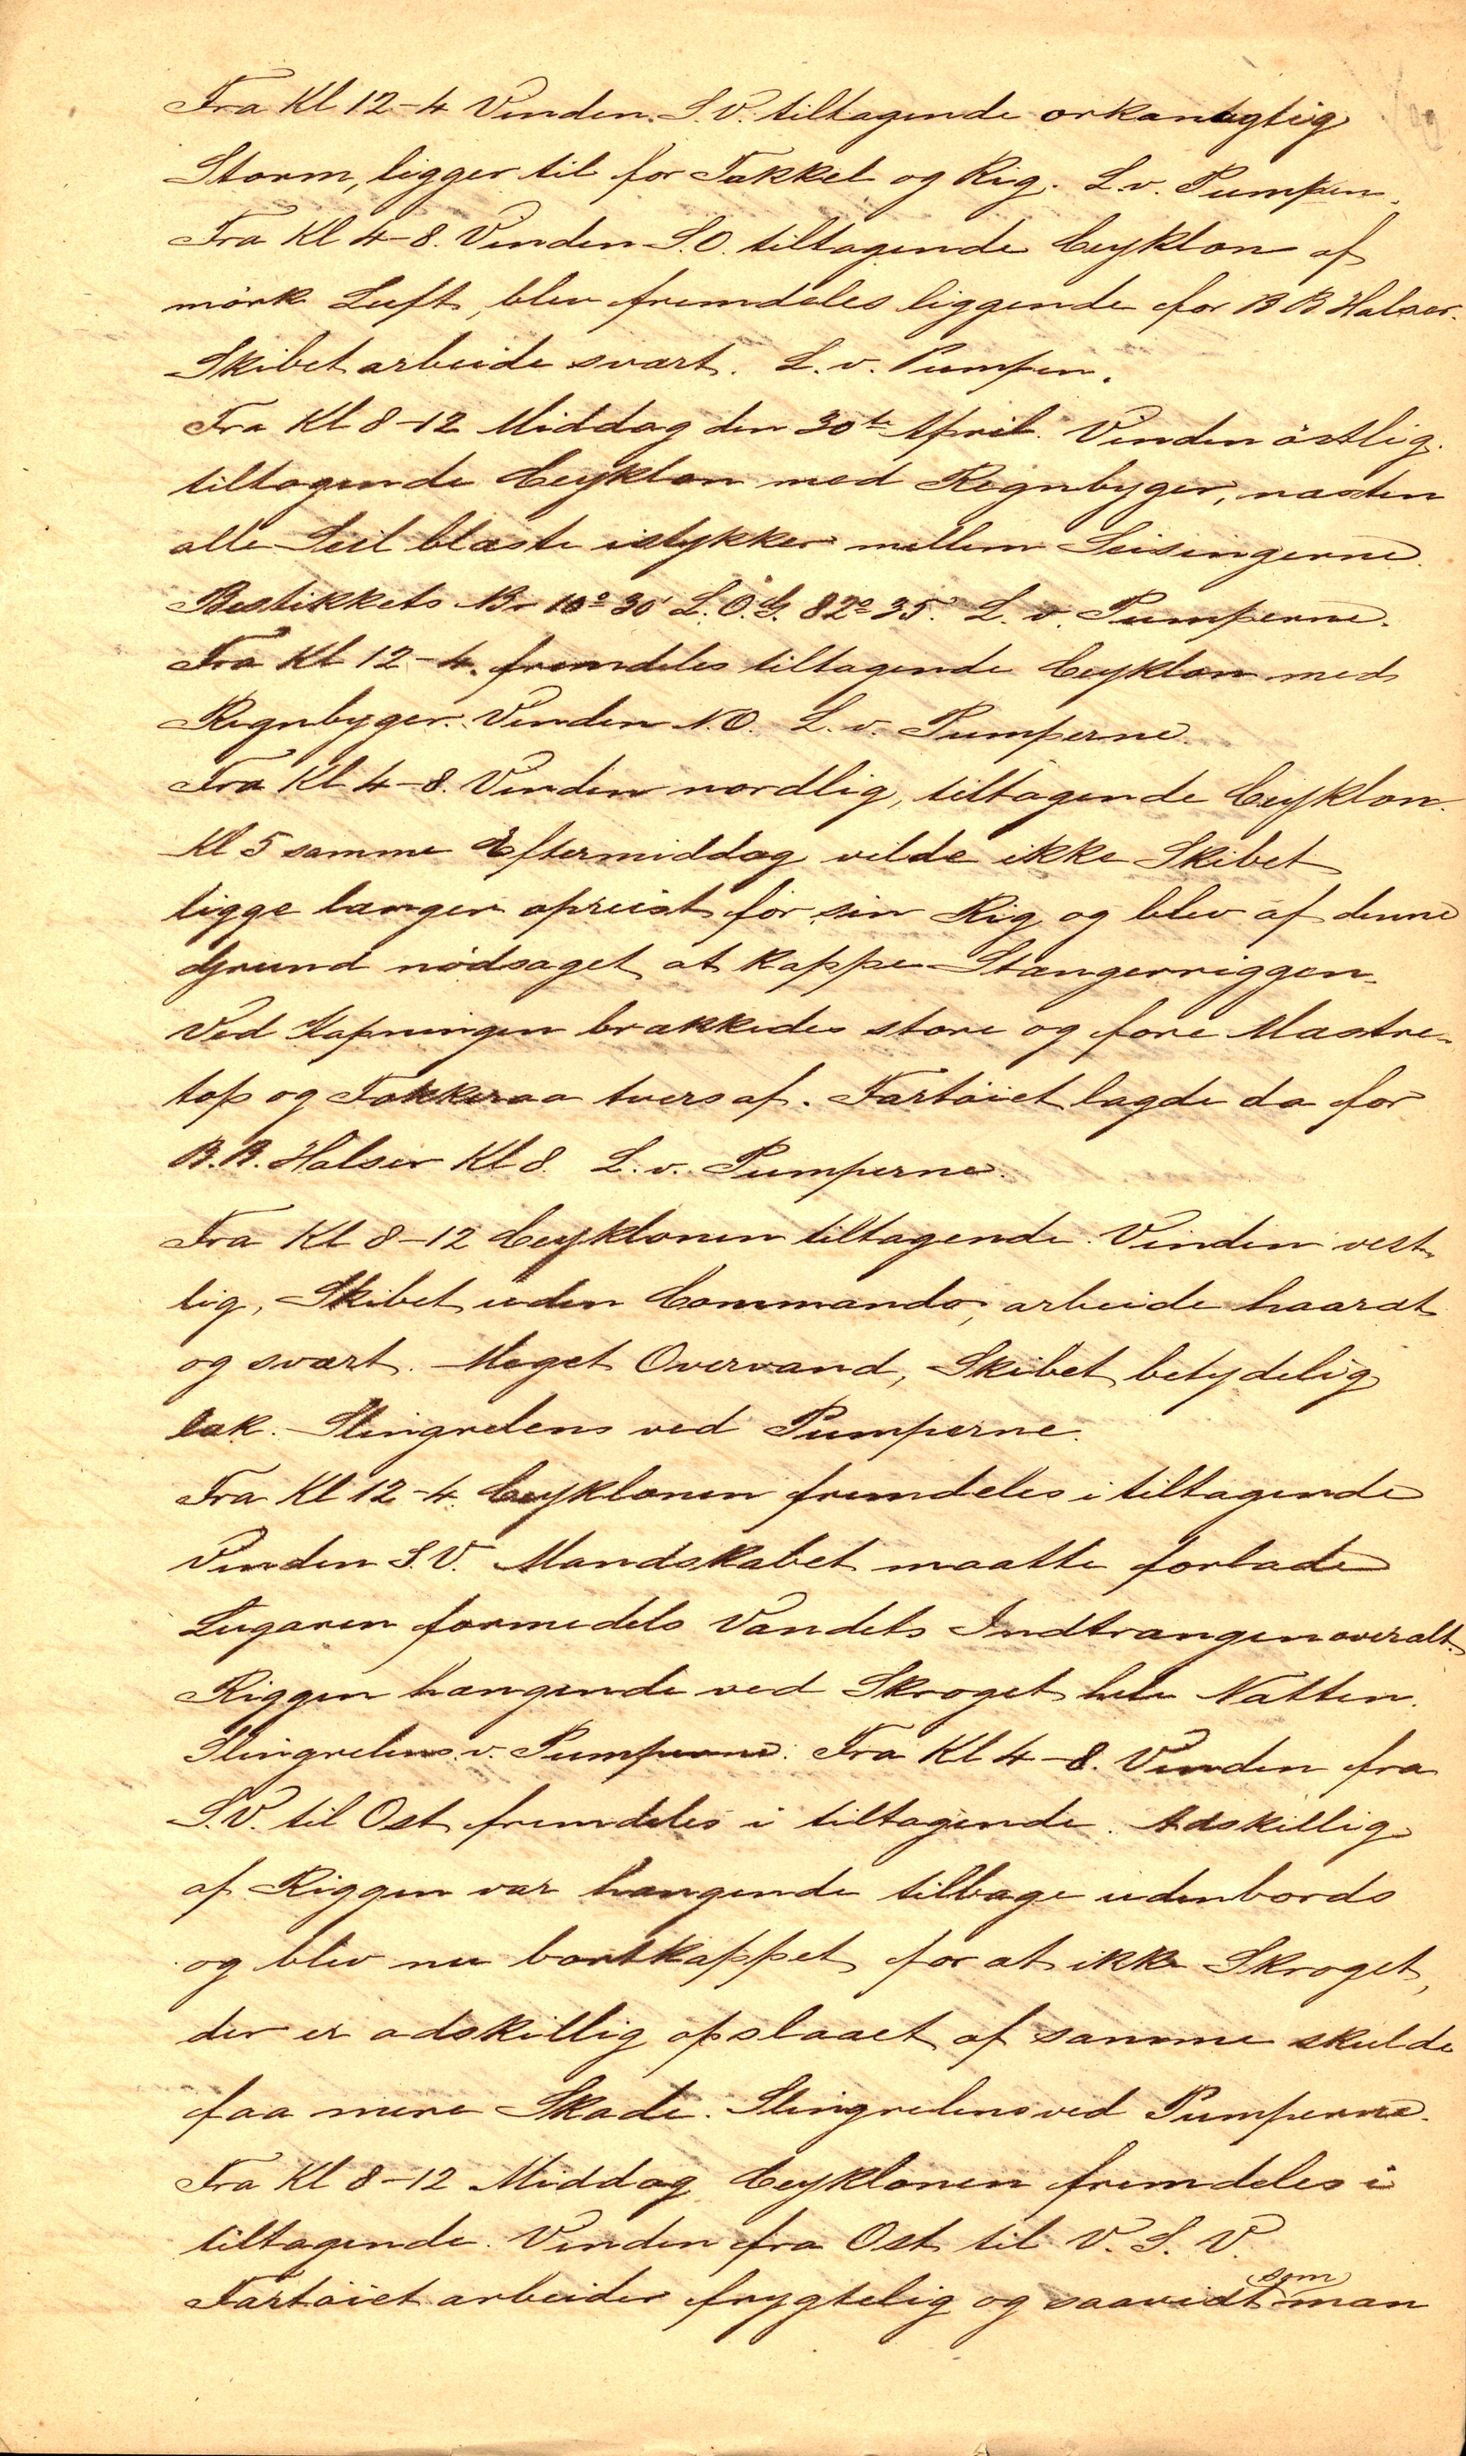 Fra Kl 12-4 Vinden S.V. tiltagende orkanagtig
Storm, ligger til for Takkel og Rig. L.v. Pumpen.
Fra Kl 4-8. Vinden S.O. tiltagende Cyklon af
mörk Luft, blev fremdeles liggende for B B Halser.
Skibet arbeide svært. L. v. Pumpen.
Fra Kl 8-12 Middag den 30te April. Vinden östlig.
tiltagende Cyklon med Regnbyger, næsten
alle Seil blæste istykker mellem Seisingerne.
Bestikkets Br 10° 30' L.Ö.G. 82° 35'. L. v. Pumperne.
Fra Kl 12-4. fremdeles tiltagende Cyklon med
Regnbyger. Vinden N.O. L. v. Pumperne.
Fra Kl 4-8. Vinden nordlig, tiltagende Cyklon.
Kl 5 samme Eftermiddag vilde ikke Skibet
ligge længer opreist for sin Rig og blev af denne
Grund nödsaget at kappe Stangerriggen.
Ved Kapningen brækkedes store og fore Mastre-
top og Fokkeraa tvers af. Fartöiet lagde da for
B.B. Halser Kl 8. L. v. Pumperne.
Fra Kl 8-12 Cyklonen tiltagende. Vinden vest-
lig, Skibet uden Commando, arbeide haardt
og svært. Meget Overvand, Skibet betydelig
læk. Slingrelens ved Pumperne.
Fra Kl 12-4. Cyklonen fremdeles i tiltagende
Vinden S.V. Mandskabet maatte forlade
Lugaren formedels Vandets Indtrængen overalt.
Riggen hængende ved Skroget hele Natten.
Slingrelens v. Pumperne. Fra Kl 4-8. Vinden fra
S.V. til Ost fremdeles i tiltagende. Adskillig
af Riggen var hængende tilbage udenbords
og blev nu bortkappet for at ikke Skroget,
der er adskillig opslaaet af samme skulde
faa mere Skade. Slingrelens ved Pumperne.
Fra Kl 8-12 Middag Cyklonen fremdeles i
tiltagende. Vinden fra Ost til V. S. V.
Fartöiet arbeider frygtelig og saavidt som man